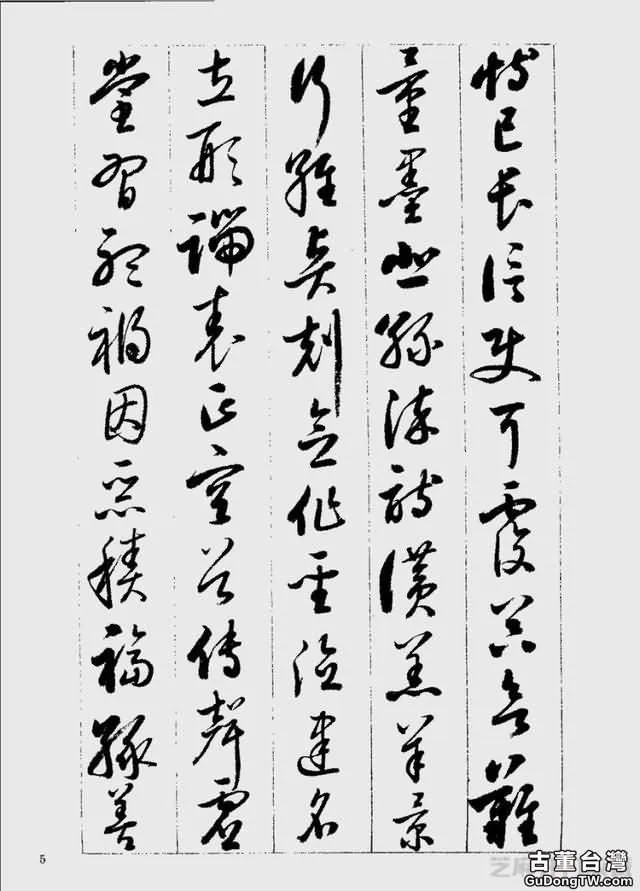 恃己長信使可覆器欲難
量墨悲絲染詩讚羔羊景
行維賢剋念作聖德建名
立形端表正空谷傳聲虛
堂習聽禍因惡積福緣善
5
古董台灣
GuDongTW.com